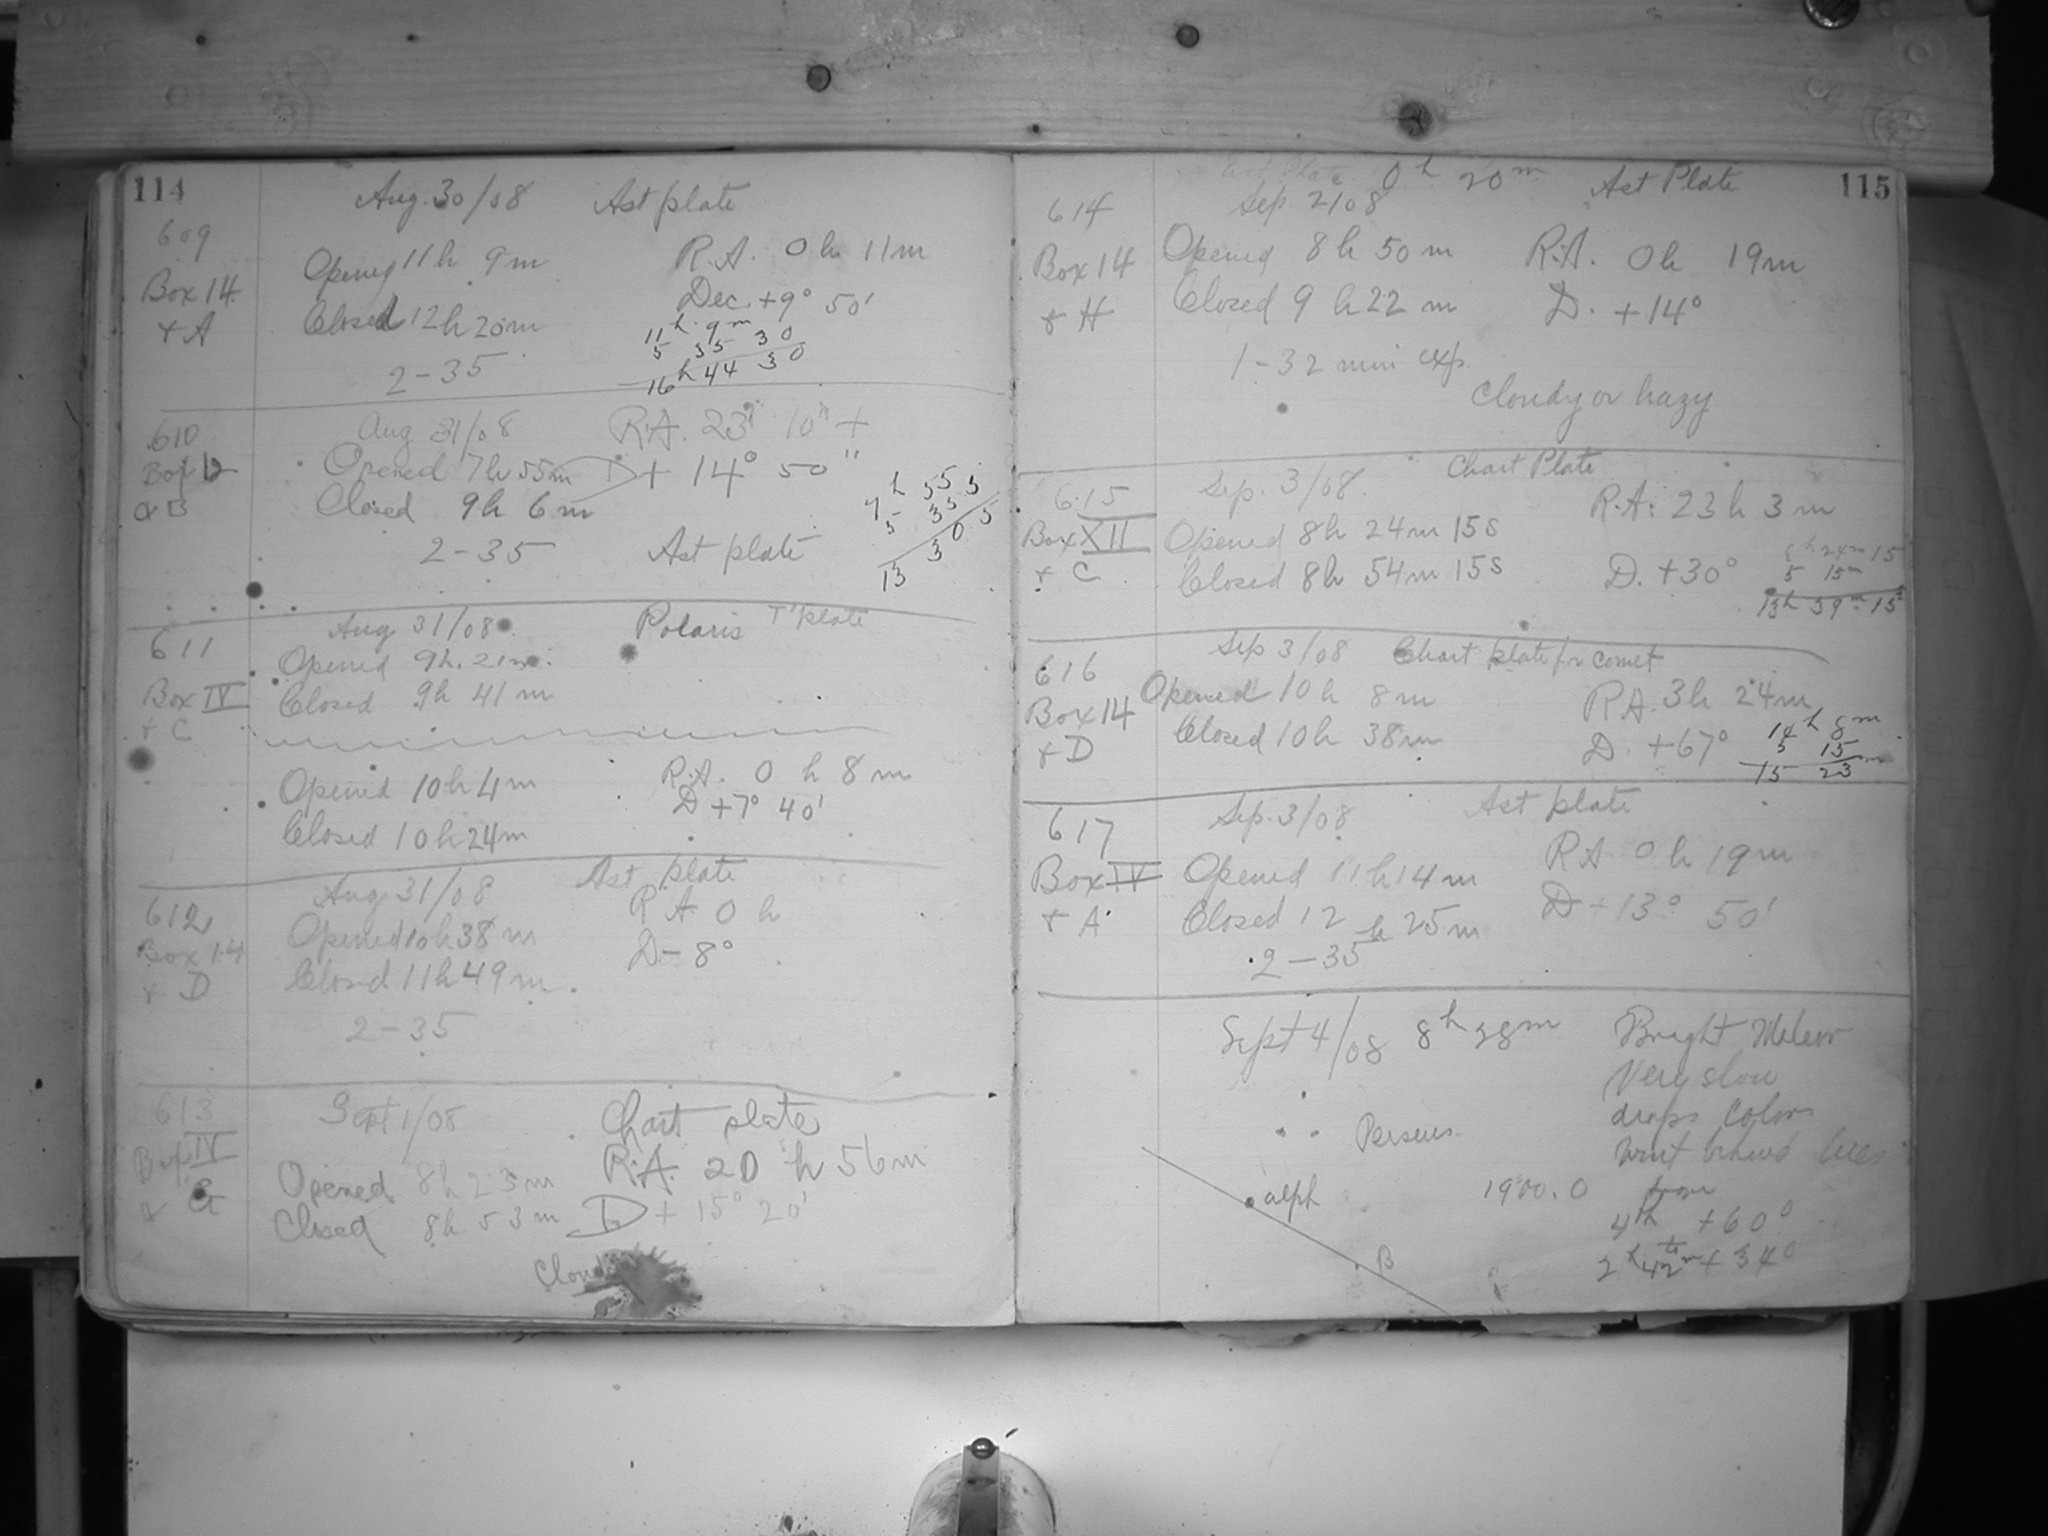 114
Aug. 30/08 Ast plate
609
Box 14
+ A
Opened 11h 9m
Closed 12h 20m
2-35
R.A. 0h 11m
Dec. +9° 50'
11h 9m
5 35 30
16h 44 30
610
Box 12
& B
Aug 31/08
Opened 7h 55m
Closed 9h 6m
2-35
R.A. 23h 10m +
D + 14° 50"
Ast plate
7h 55 5
5 35
13 30 5
611
Box IV
+ C
Aug 31/08 Polaris T'plate
Opened 9h. 21m.
Closed 9h 41m
Opened 10h 4m
Closed 10h 24m
R.A. 0h 8m
D +7° 40'
612
Box 14
& D
Aug 31/08 Ast plate
Opened 10h 38m
Closed 11h 49m.
2-35
R A 0h
D - 8°
613
Box IV
& G
Sept 1/08 Chart plate
Opened 8h 23m
Closed 8h 53m
R.A. 20h 56m
D + 15° 20'
115
Ast Plate 0h 20m
Sep. 2/08 Ast Plate
614
Box 14
& H
Opened 8h 50m
Closed 9h 22m
1-32 min exp.
R.A. 0h 19m
D. +14°
Cloudy or hazy
615
Box XII
+ C
Sep. 3/08. Chart Plate
Opened 8h 24m 15s
Closed 8h 54m 15s
R.A. 23h 3m
D. +30°
8h 24m 15
5 15m
13h 39m 15s
616
Box 14
+ D
Sep 3/08 Chart plate for comet
Opened 10h 8m
Closed 10h 38m
R.A. 3h 24m
D. +67°
10h 8m
5 15
15 23m
617
Box IV
+ A
Sep. 3/08 Ast plate
Opened 11h 14m
Closed 12h 25m
2-35
R A 0h 19m
D +13° 50'
Sept 4/08 8h 28m
Bright Meteor
Very slow
drops colors
Went behind trees
Perseus.
alph
B
1900.0 from
4h +60°
to
2h 42m + 34°